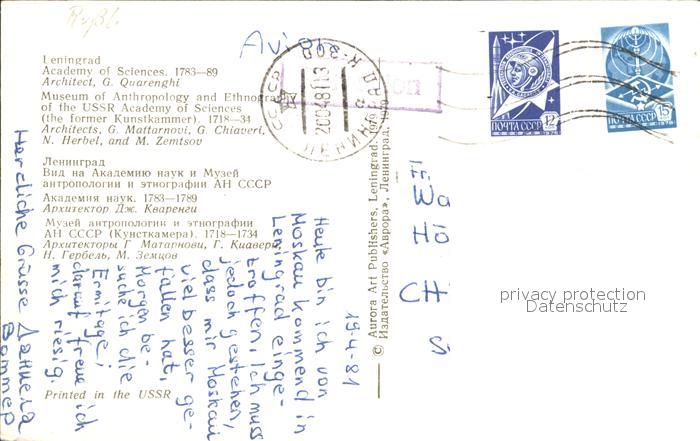 Rußl.
Avion
Leningrad
Academy of Sciences. 1783—89
Architect, G. Quarenghi
Museum of Anthropology and Ethnogra
of the USSR Academy of Sciences
(the former Kunstkammer). 1718—34
Architects, G. Mattarnovi, G. Chiaveri,
N. Herbel, and M. Zemtsov
Ленинград
Вид на Академию наук и Музей
антропологии и этнографии АН СССР
Академия наук. 1783—1789
Архитектор Дж. Кваренги
Музей антропологии и этнографии
АН СССР (Кунсткамера). 1718—1734
Архитекторы Г Матарнови, Г. Киавери,
Н. Гербель, М. Земцов
Printed in the USSR
© Aurora Art Publishers, Leningrad. 1979
Издательство «Аврора», Ленинград, 1979
СССР
ЛЕНИНГРАД
ПОЧТА СССР 12
ПОЧТА СССР 15
19.4.81
Heute bin ich von
Moskau kommend in
Leningrad einge-
troffen. Ich muss
jedoch gestehen,
dass mir Moskau
viel besser ge-
fallen hat.
Morgen be-
suche ich die
Ermitage;
darauf freue ich
mich riesig.
Herzliche Grüsse Даниела
Ваттер
CH
privacy protection
Datenschutz